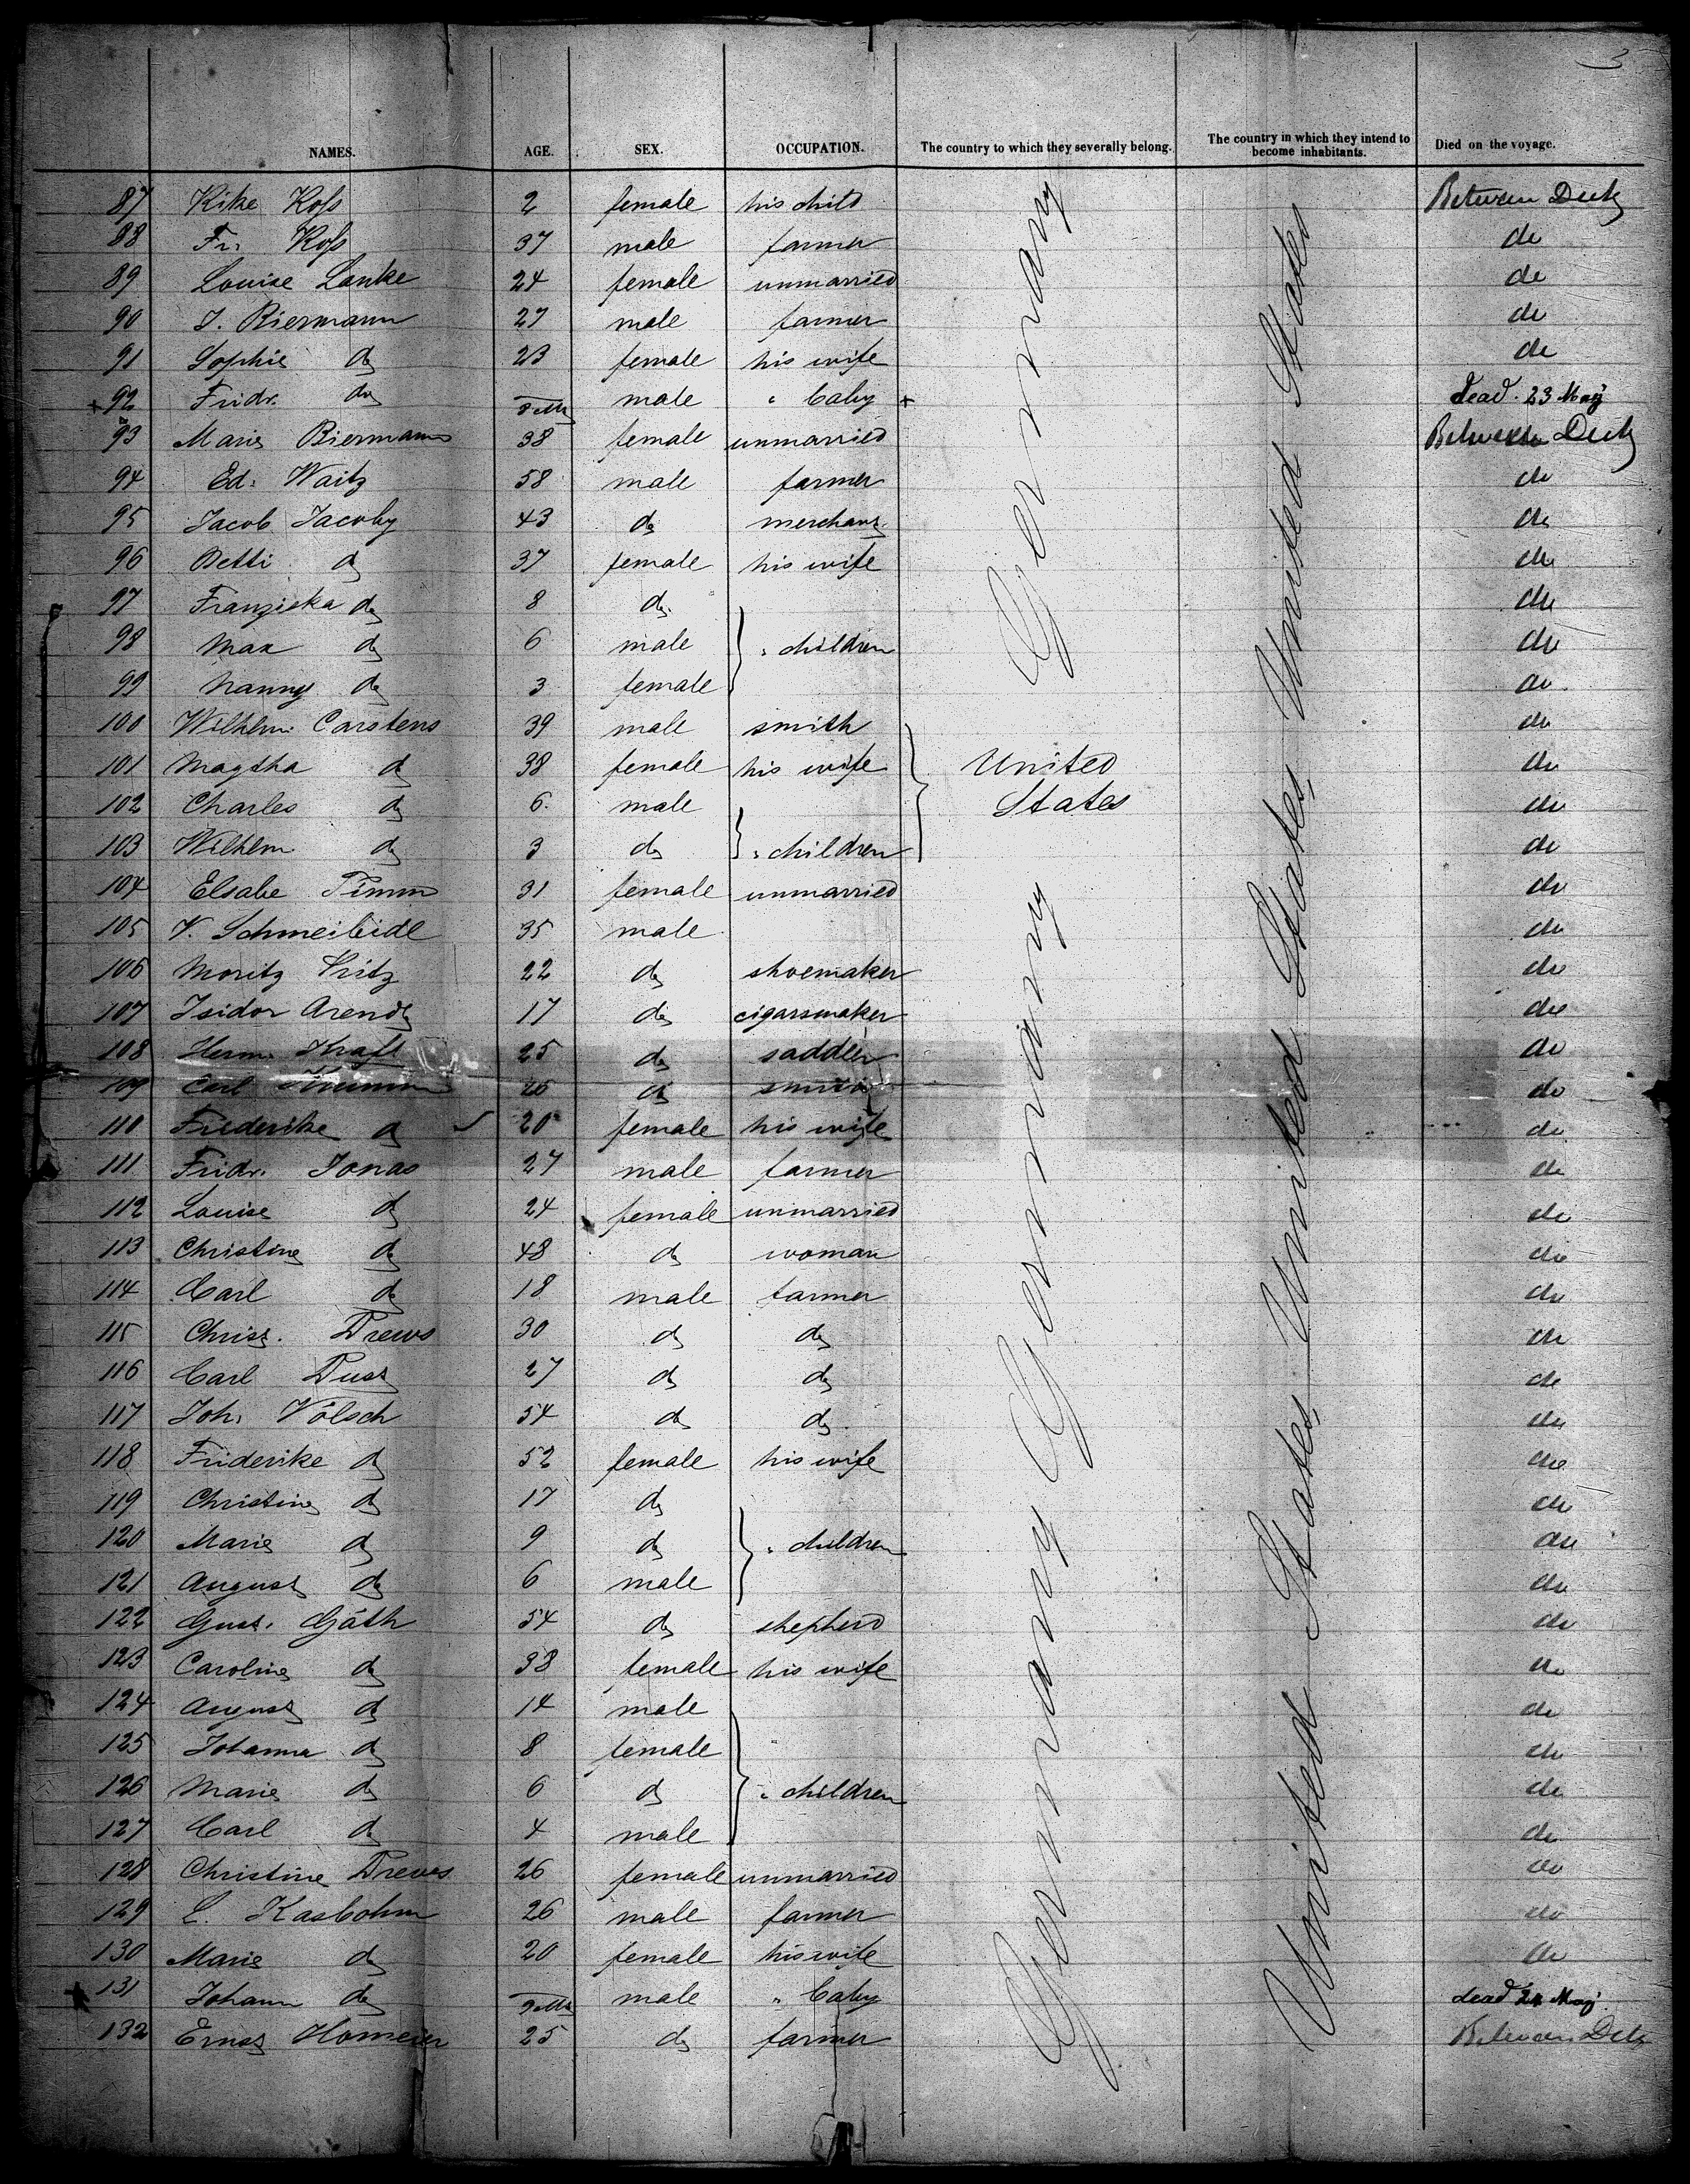 3
NAMES. AGE. SEX. OCCUPATION. The country to which they severally belong. The country in which they intend to become inhabitants. Died on the voyage.
87 Rike Koſs 2 female his child Between Deck
88 Fr. Koſs 37 male farmer do
89 Louise Lanke 24 female unmarried do
90 J. Biermann 27 male farmer do
91 Sophie do 23 female his wife do
+ 92 Fridr. do male " baby + dead. 23 May
93 Marie Biermann 38 female unmarried Between Deck
94 Ed. Waitz 58 male farmer do
95 Jacob Jacoby 43 do merchant do
96 Betti do 37 female his wife do
97 Franziska do 8 do do
98 Max do 6 male " children do
99 Nanny do 3 female do
Germany
100 Wilhlm. Carstens 39 male smith do
101 Magtha do 38 female his wife United do
102 Charles do 6 male States do
103 Wilhlm. do 3 do " children do
104 Elsabe Timm 31 female unmarried do
105 V. 35 male do
106 Moritz 22 do shoemaker do
107 Isidor Arendt 17 do cigarsmaker do
108 Herm. Kraft 25 do saddler do
109 Carl do smith do
110 Friderike do 20 female his wife do
111 Fridr. Jonas 27 male farmer do
112 Louise do 24 female unmarried do
113 Christine do 48 do woman do
114 Carl do 18 male farmer do
115 Christ. Drews 30 do do do
116 Carl Dust 27 do do do
117 Joh. Völsch 54 do do do
118 Friderike do 52 female his wife do
119 Christine do 17 do do
120 Marie do 9 do " children do
121 August do 6 male do
122 Gust. Gäth 54 do shepherd do
123 Caroline do 38 female his wife do
124 August do 14 male do
125 Johanna do 8 female do
126 Marie do 6 do " children do
127 Carl do 4 male do
128 Christine Drews 26 female unmarried do
129 L. Kasbohm 26 male farmer do
130 Marie do 20 female his wife do
+ 131 Johann do male " baby dead 24 May
132 Ernst Homeier 25 do farmer Between Deck
Germany Germany
United States United States United States